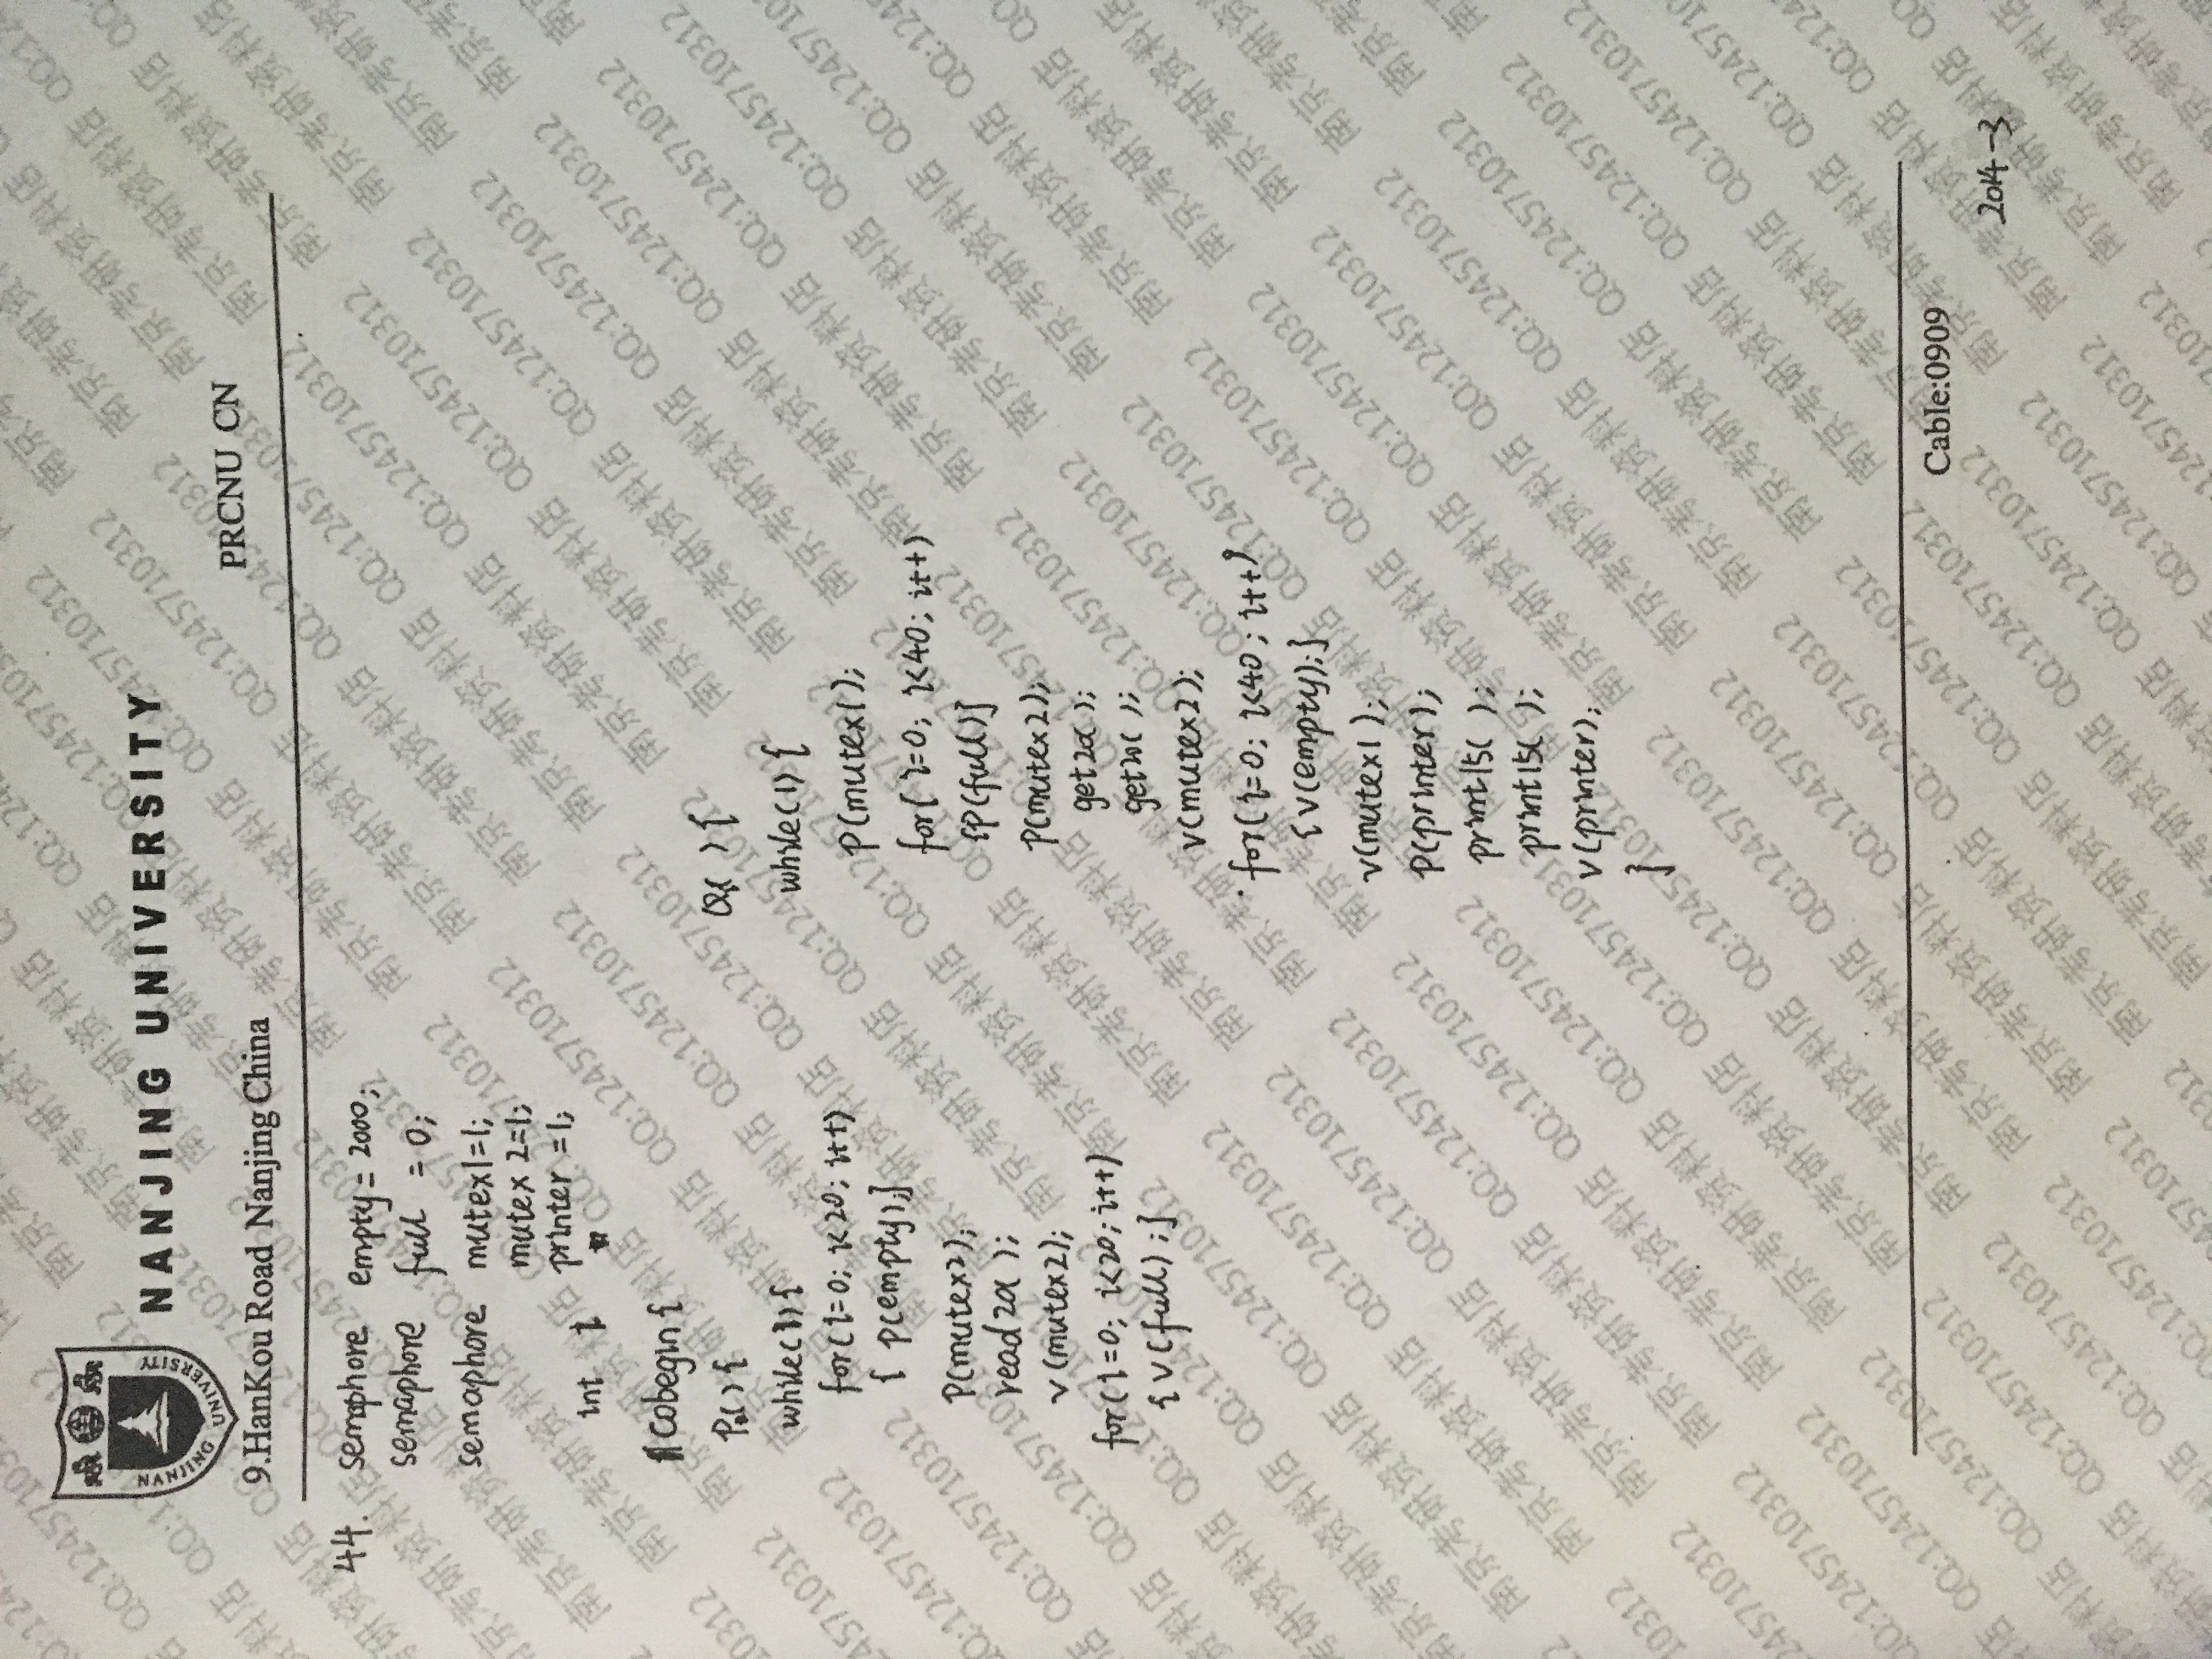 NANJING UNIVERSITY
NANJING UNIVERSITY
9.HanKou Road Nanjing China
PRCNU CN
44. semaphore empty = 2000;
semaphore full = 0;
semaphore mutex1=1;
mutex 2=1;
printer =1;
int i
cobegin {
Pa( ) {
while(1) {
for(i=0; i<20; i++)
{ p(empty); }
P(mutex2);
read20( );
v(mutex2);
for(i=0; i<20; i++)
{ v(full); }
Qi( ) {
while(1) {
p(mutex1);
for( i=0; i<40; i++)
{p(full)}
p(mutex2);
get20( );
get20( );
v(mutex2);
for(i=0; i<40; i++)
{v(empty);}
v(mutex1 );
p(printer);
print15( );
print15( );
v(printer);
}
Cable:0909
2014-3
南京考研资料店 QQ:1245710312